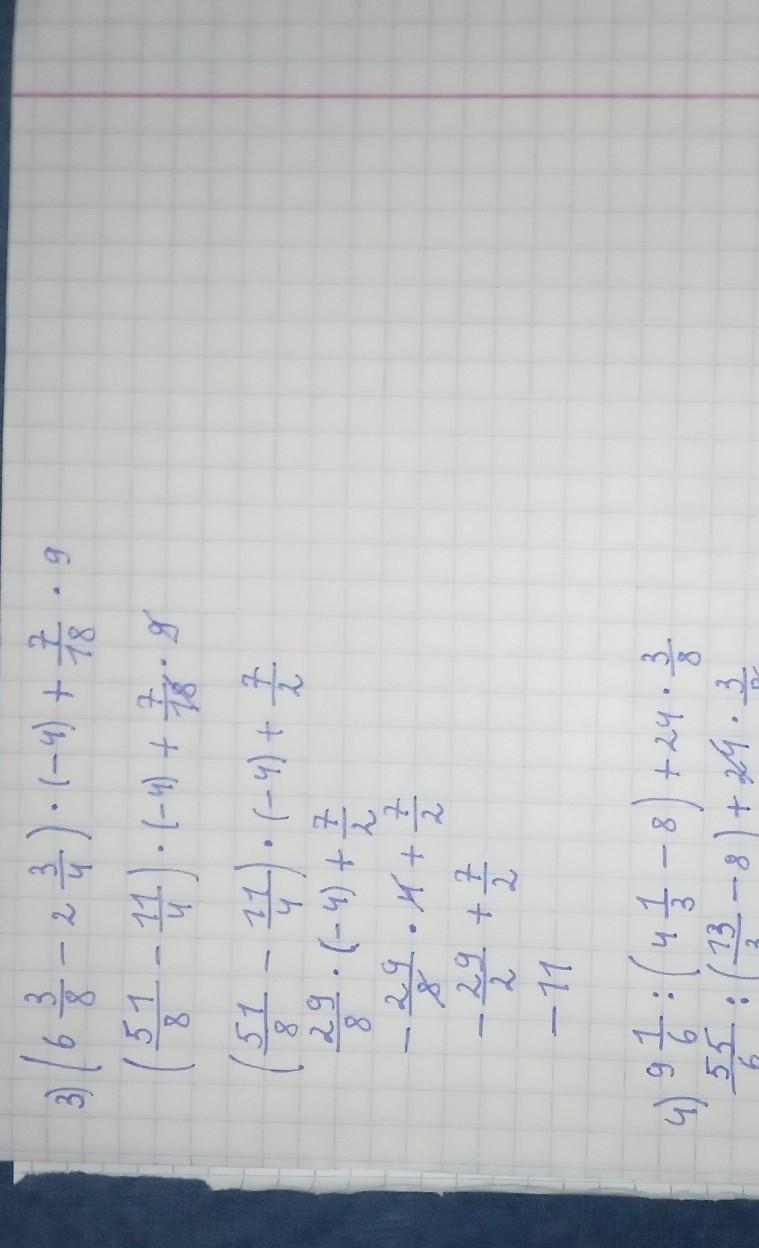 3) (6 3/8 - 2 3/4) · (-4) + 7/18 · 9
(51/8 - 11/4) · (-4) + 7/18 · 9
(51/8 - 11/4) · (-4) + 7/2
29/8 · (-4) + 7/2
- 29/8 · 4 + 7/2
- 29/2 + 7/2
- 11
4) 9 1/6 : (4 1/3 - 8) + 24 · 3/8
55/6 : (13/3 - 8) + 24 · 3/8